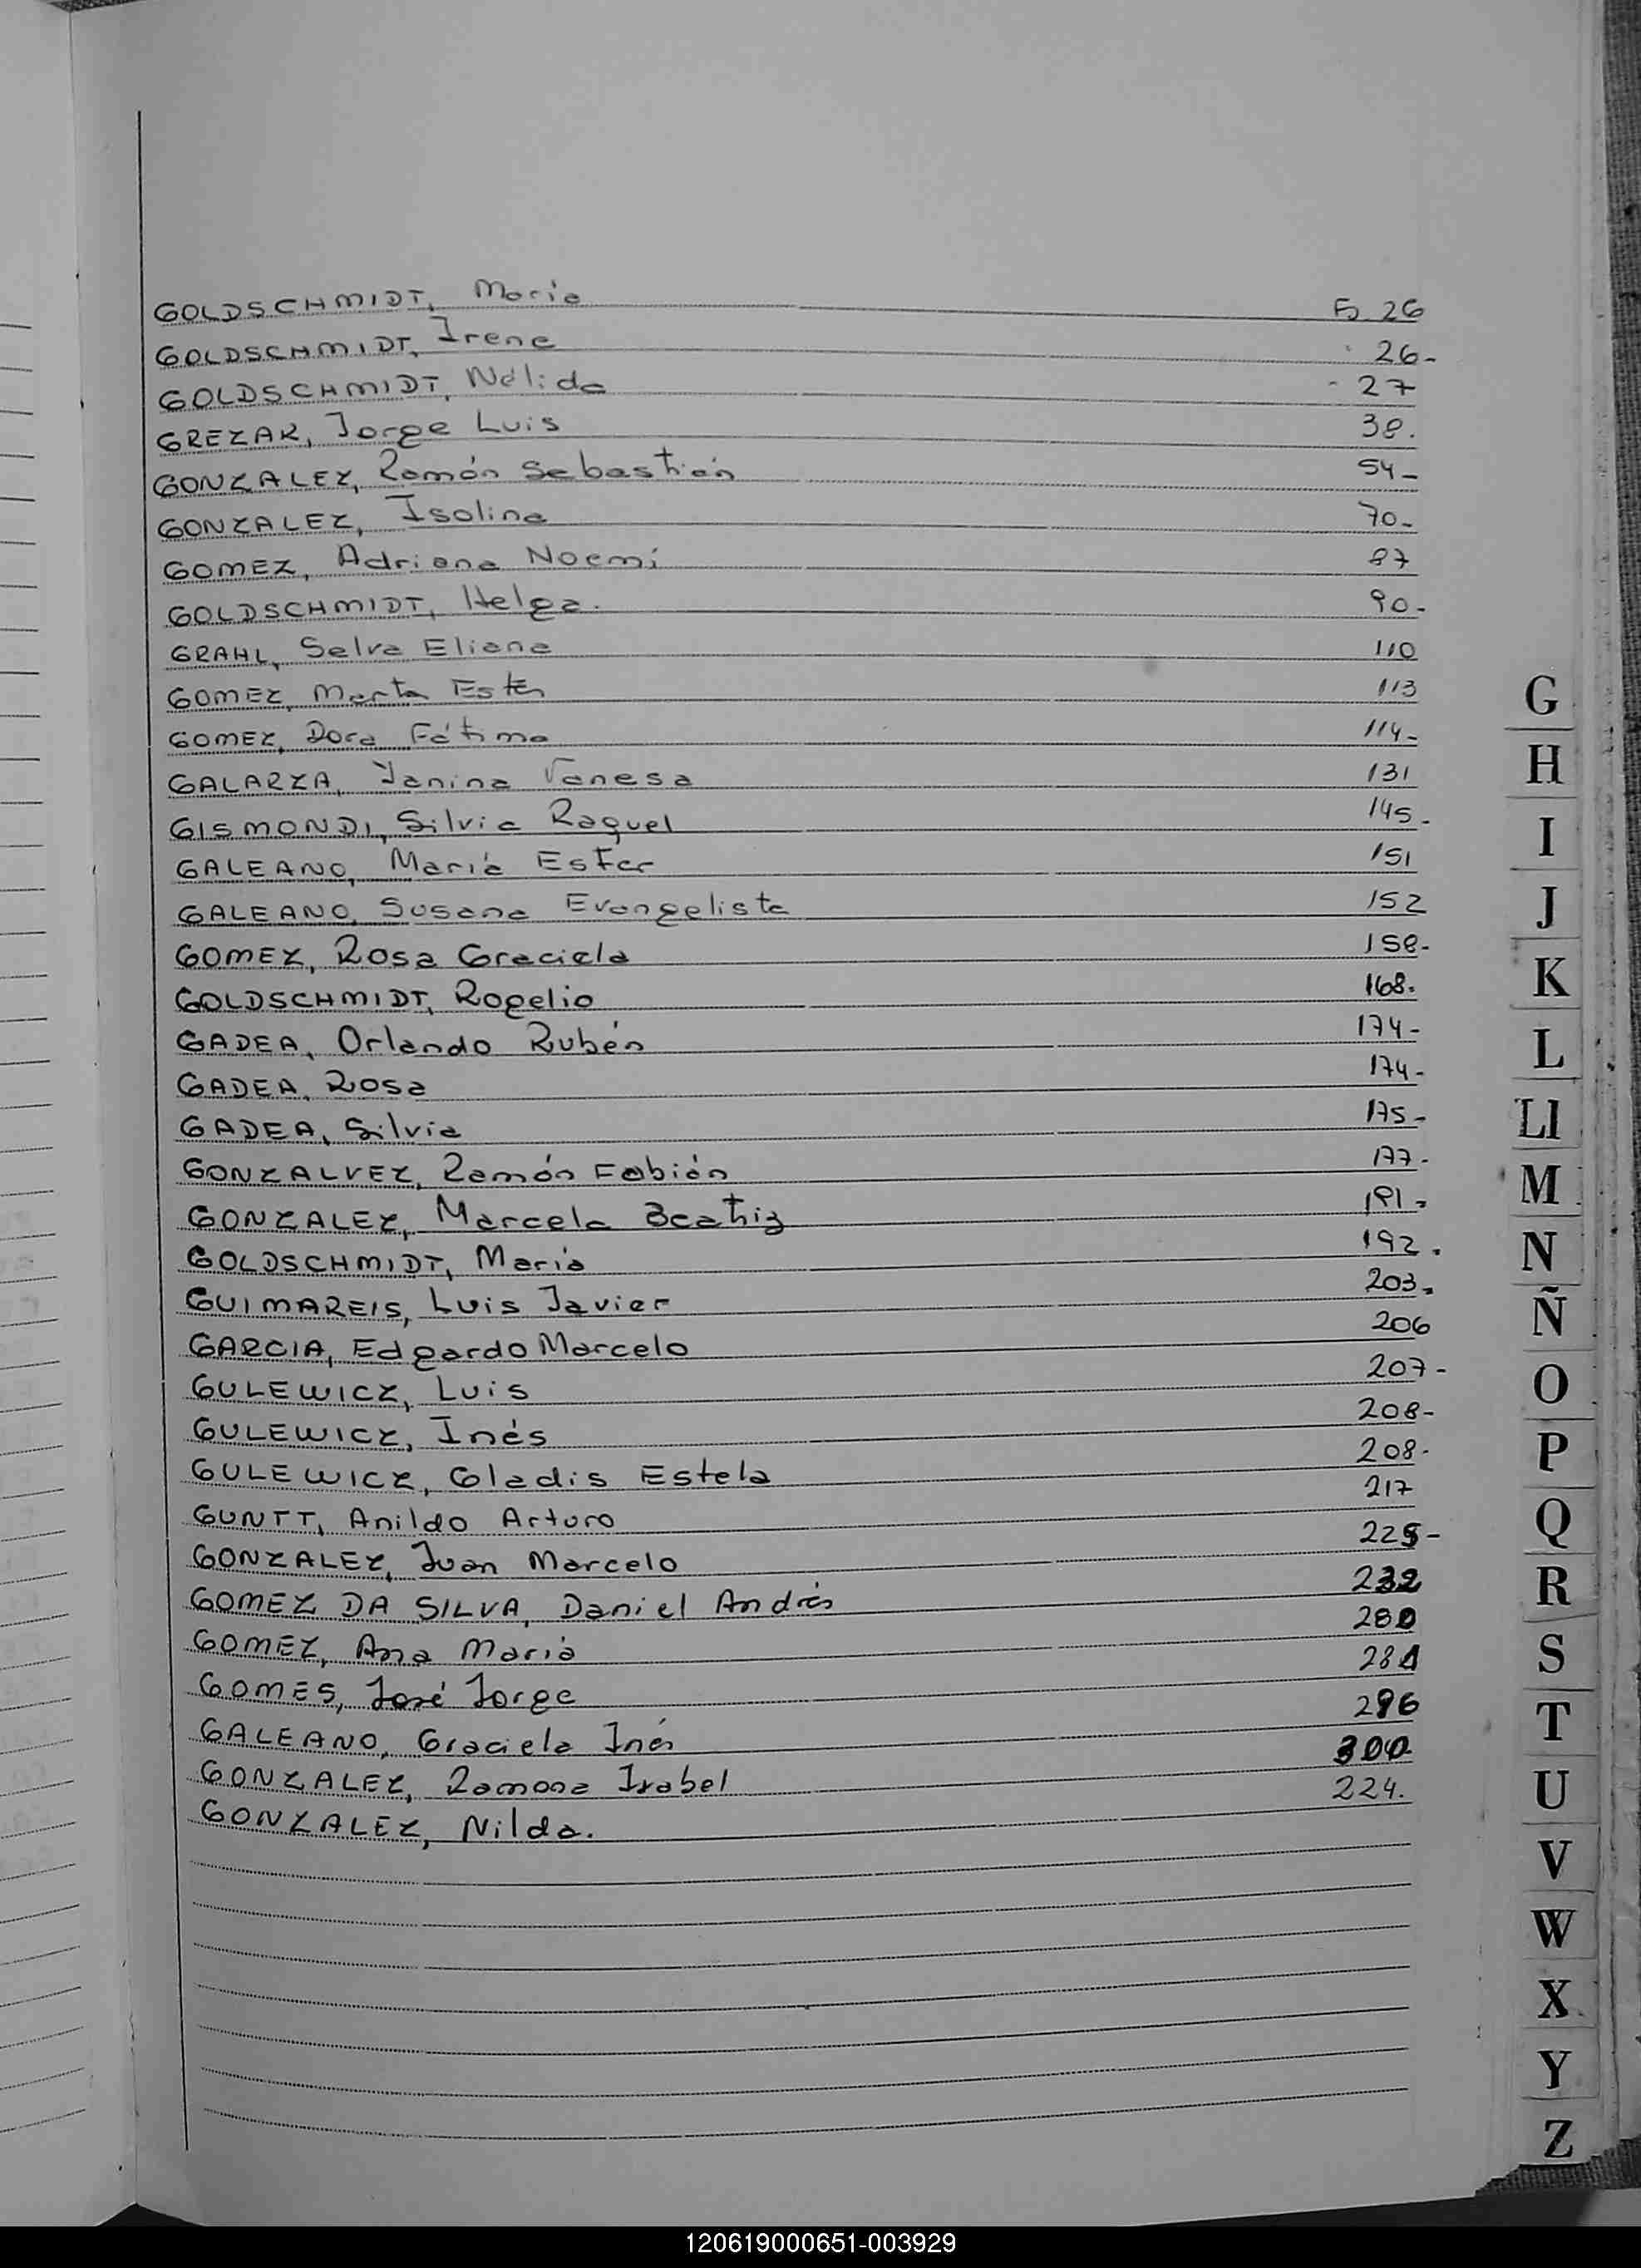 GOLDSCHMIDT, María Fo 26
GOLDSCHMIDT, Irene 26-
GOLDSCHMIDT, Nélida 27
GREZAR, Jorge Luis 38.
GONZALEZ, Ramón Sebastián 54-
GONZALEZ, Isolina 70-
GOMEZ, Adriana Noemí 87
GOLDSCHMIDT, Helga. 90-
GRAHL, Selva Eliana 110
GOMEZ, Marta Ester 113
GOMEZ, Dora Fátima 114-
GALARZA, Yanina Vanesa 131
GISMONDI, Silvia Raquel 145-
GALEANO, María Ester 151
GALEANO, Susana Evangelista 152
GOMEZ, Rosa Graciela 158-
GOLDSCHMIDT, Rogelio 168.
GADEA, Orlando Rubén 174-
GADEA, Rosa 174-
GADEA, Silvia 175-
GONZALVEZ, Ramón Fabián 177-
GONZALEZ, Marcela Beatriz 191.
GOLDSCHMIDT, María 192.
GUIMAREIS, Luis Javier 203.
GARCIA, Edgardo Marcelo 206
GULEWICZ, Luis 207-
GULEWICZ, Inés 208-
GULEWICZ, Gladis Estela 208-
GUNTT, Anildo Arturo 217
GONZALEZ, Juan Marcelo 225-
GOMEZ DA SILVA, Daniel Andrés 232
GOMEZ, Ana María 280
GOMES, José Jorge 281
GALEANO, Graciela Inés 296
GONZALEZ, Ramona Isabel 300
GONZALEZ, Nilda. 224.
G
H
I
J
K
L
Ll
M
N
Ñ
O
P
Q
R
S
T
U
V
W
X
Y
Z
120619000651-003929